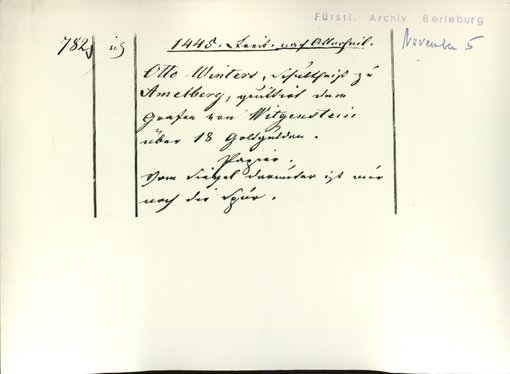 Fürstl. Archiv Berleburg
782, 1445. Freit. nach Allerheil. November 5
Otto Winters, Schultheiß zu
Amelberg, quittirt dem
Grafen von Witgenstein
über 18 Goldgulden.
Papier.
Vom Siegel darunter ist nur
noch die Spur.